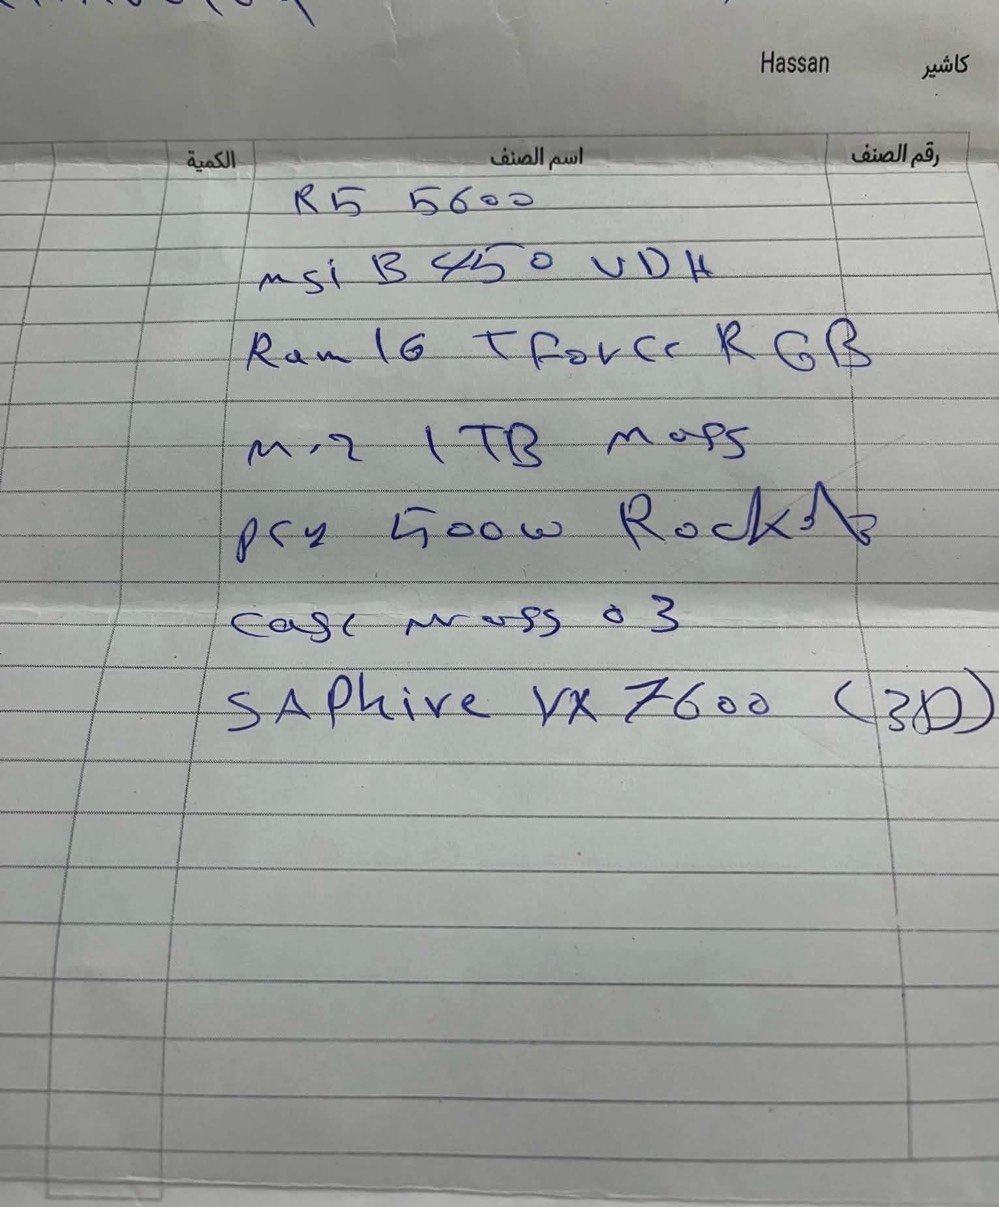 كاشير Hassan
رقم الصنف اسم الصنف الكمية
R5 5600
msi B450 VDH
Ram 16 TForce RGB
M.2 1TB
PSU 500w
Case 03
SAPhire VX 7600 (3D)